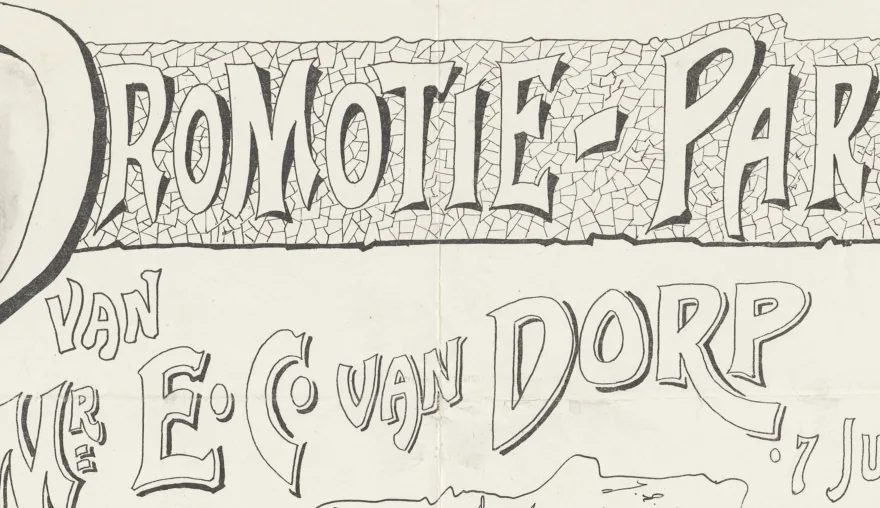 PROMOTIE-PAR
VAN
MR E. C. VAN DORP
7 JU